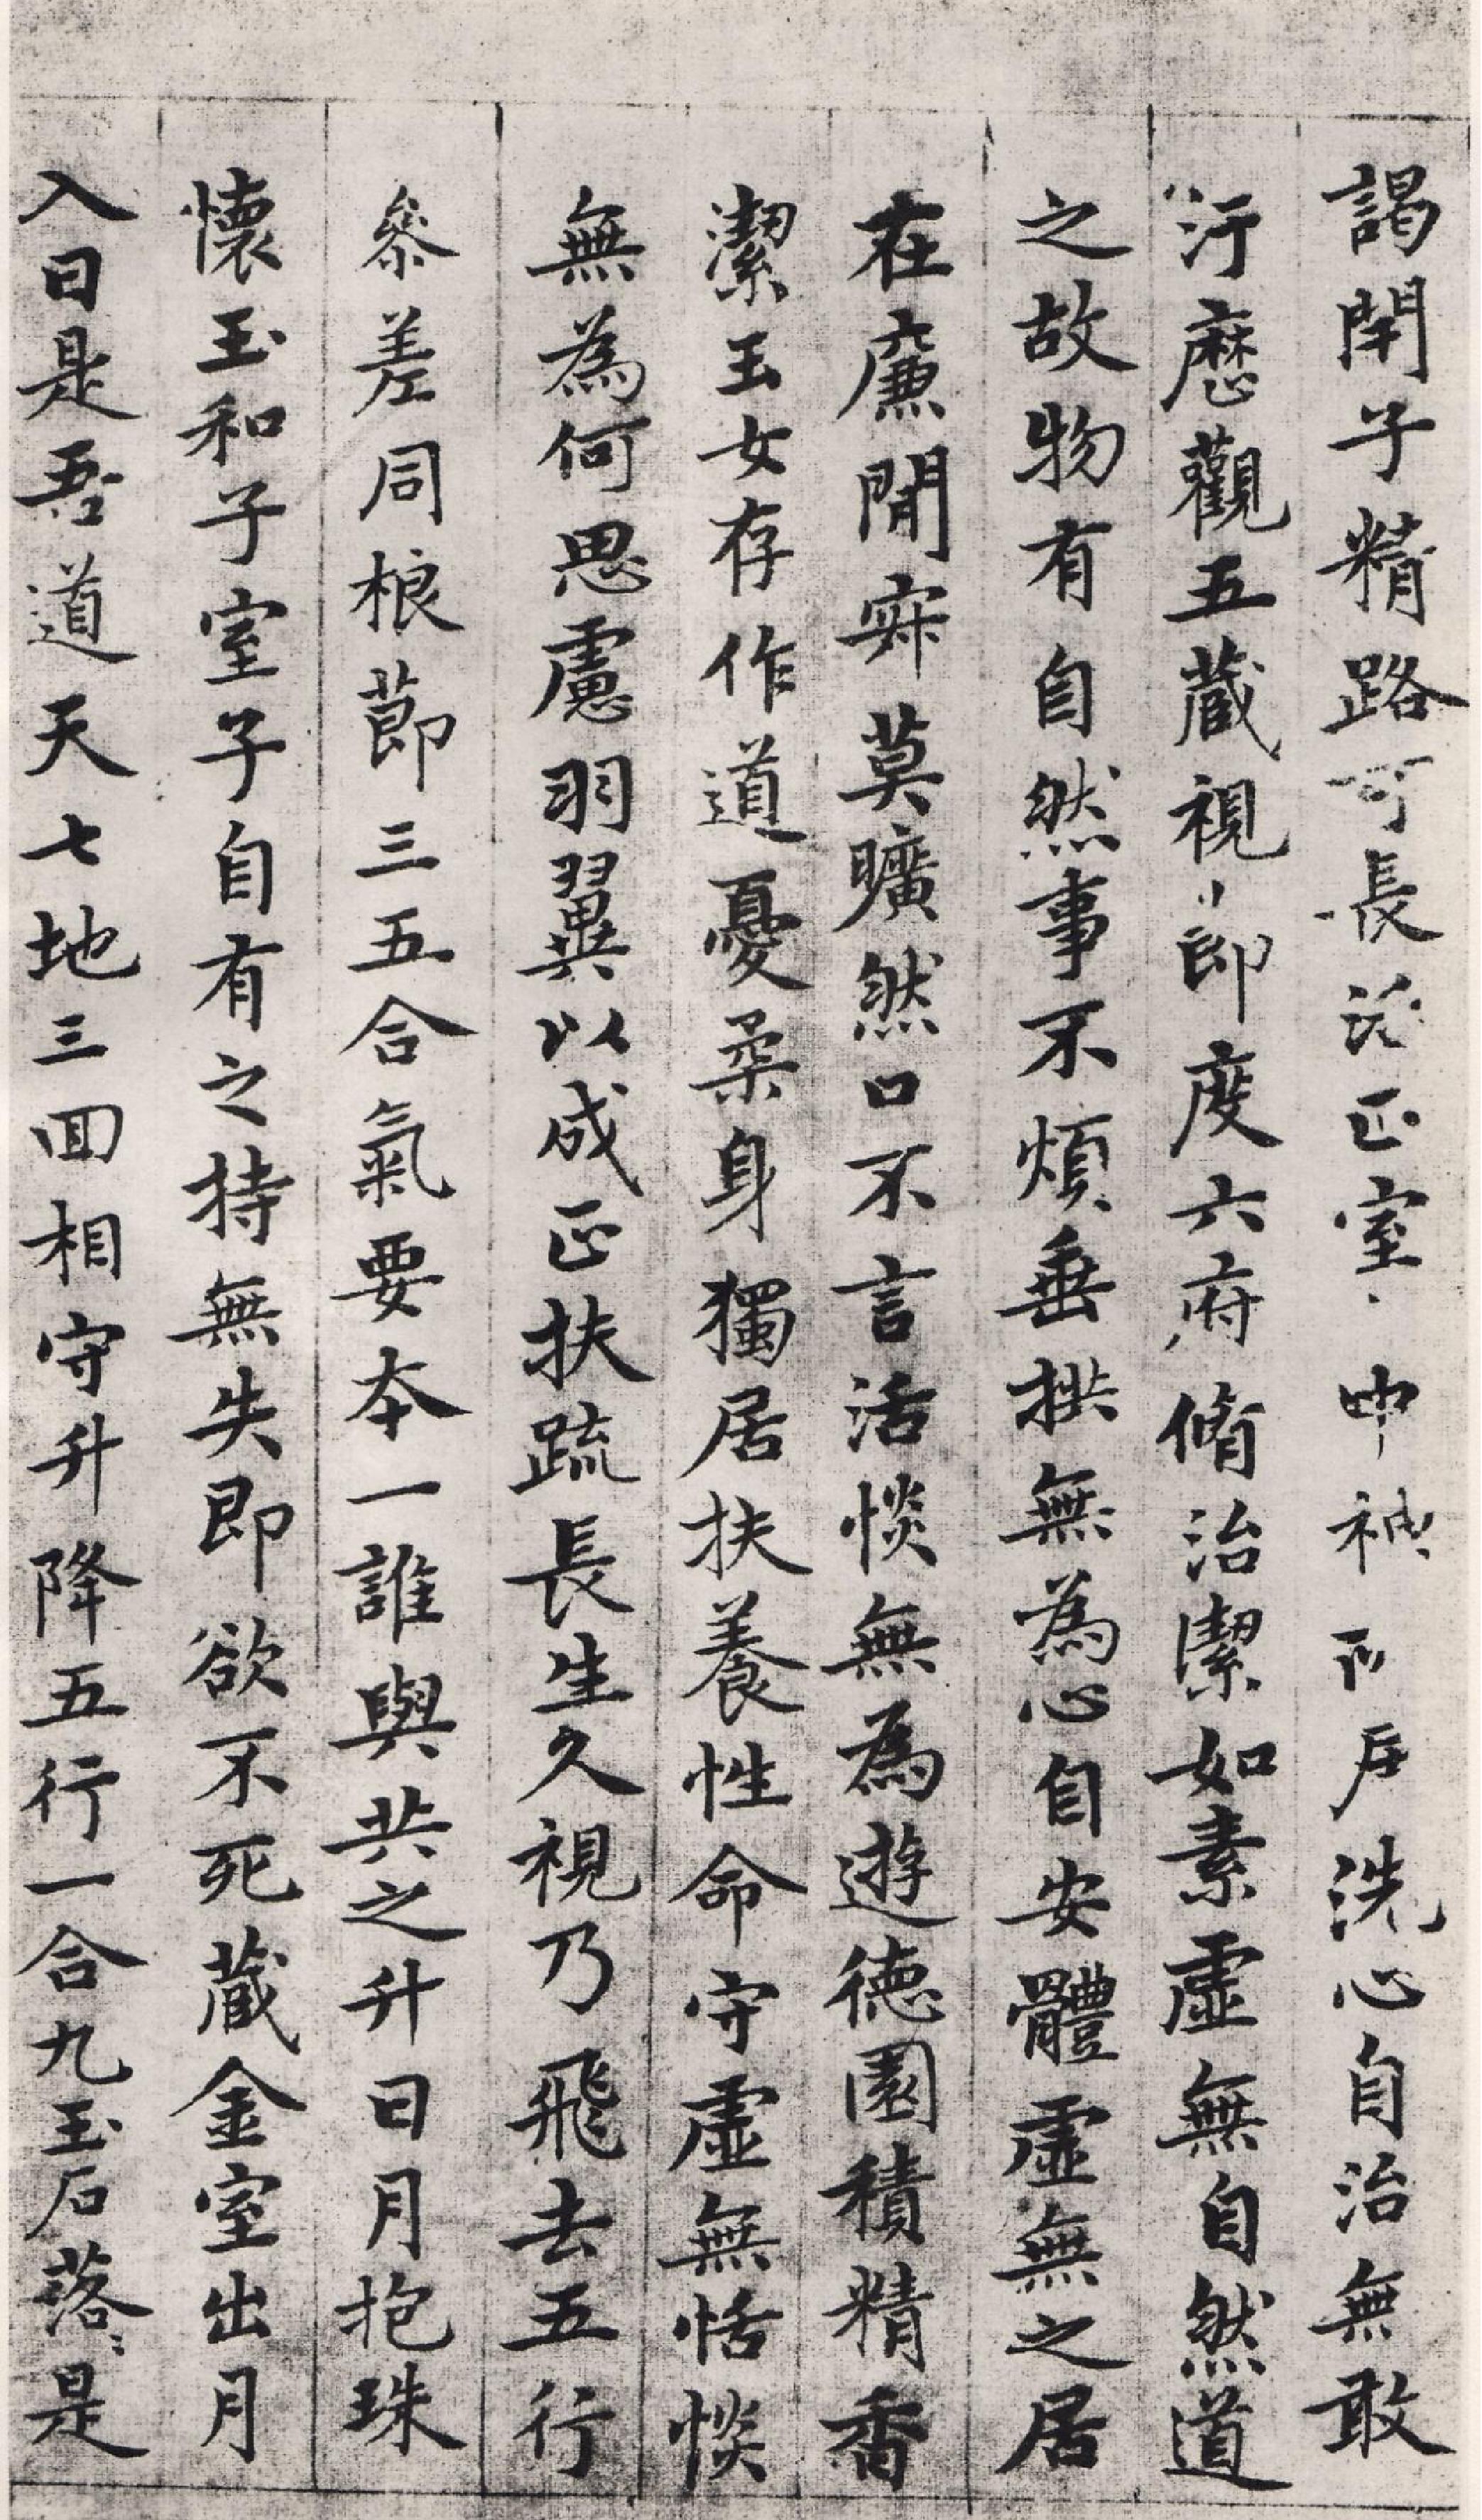 謁閇子精路可長活正室中神所戶洗心自治無敢
汙歷觀五藏視節度六府脩治潔如素虛無自然道
之故物有自然事不煩垂拱無為心自安體虛無之居
在廉閒寂莫曠然口不言活惔無為遊德園積精香
潔玉女存作道憂柔身獨居扶養性命守虛無恬惔
無為何思慮羽翼以成正扶疏長生久視乃飛去五行
叅差同根節三五合氣要本一誰與共之升日月抱珠
懷玉和子室子自有之持無失即欲不死藏金室出月
入日是吾道天七地三回相守升降五行一合九玉石落〻是